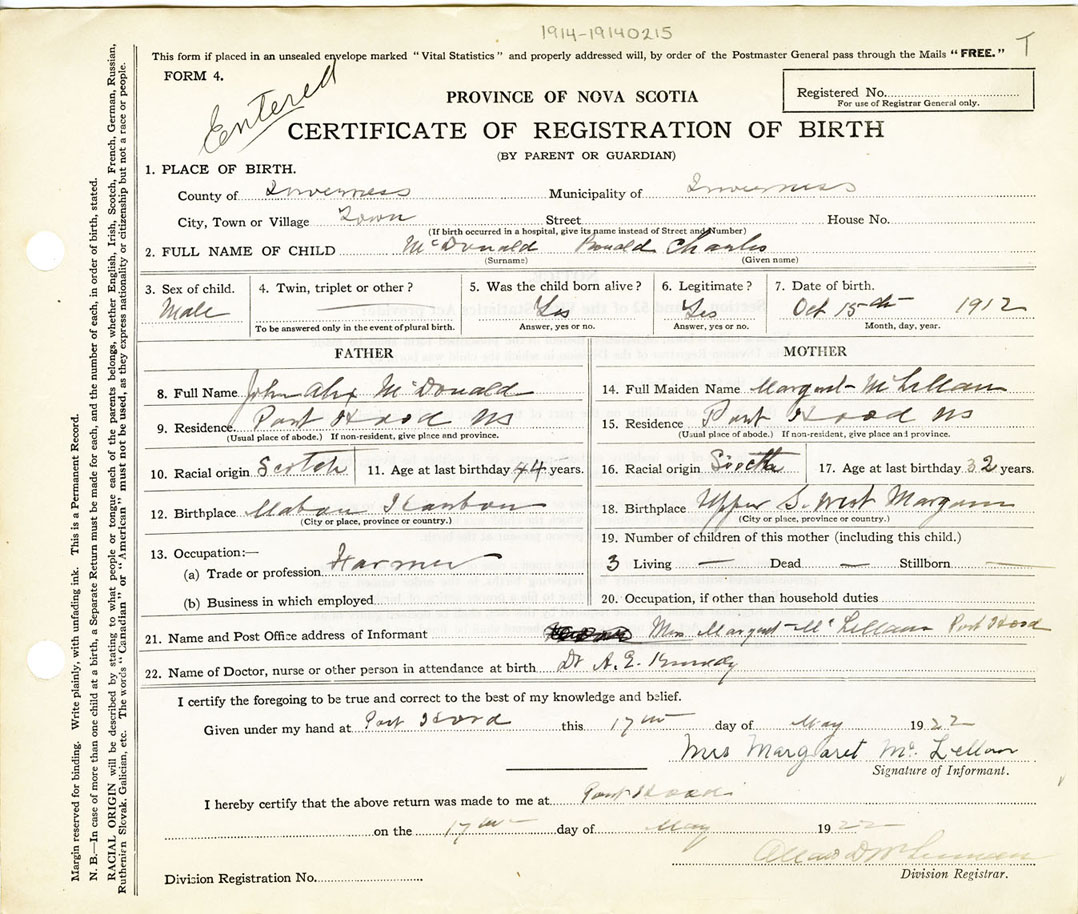 1914-19140215
T
This form if placed in an unsealed envelope marked "Vital Statistics" and properly addressed will, by order of the Postmaster General pass through the Mails "FREE."
FORM 4.
Entered
Registered No.
For use of Registrar General only.
PROVINCE OF NOVA SCOTIA
CERTIFICATE OF REGISTRATION OF BIRTH
(BY PARENT OR GUARDIAN)
1. PLACE OF BIRTH.
County of Inverness Municipality of Inverness
City, Town or Village Town Street House No.
(If birth occurred in a hospital, give its name instead of Street and Number)
2. FULL NAME OF CHILD McDonald Ronald Charles
(Surname) (Given name)
3. Sex of child. 4. Twin, triplet or other? 5. Was the child born alive? 6. Legitimate? 7. Date of birth.
Male Yes Yes Oct 15th 1912
To be answered only in the event of plural birth. Answer, yes or no. Answer, yes or no. Month, day, year.
FATHER
8. Full Name John Alex McDonald
9. Residence Port Hood NS
(Usual place of abode.) If non-resident, give place and province.
10. Racial origin Scotch 11. Age at last birthday 44 years.
12. Birthplace Mabou Harbour
(City or place, province or country.)
13. Occupation:—
(a) Trade or profession Farmer
(b) Business in which employed
MOTHER
14. Full Maiden Name Margaret McLellan
15. Residence Port Hood NS
(Usual place of abode.) If non-resident, give place and province.
16. Racial origin Scotch 17. Age at last birthday 32 years.
18. Birthplace Upper S. West Margaree
(City or place, province or country.)
19. Number of children of this mother (including this child.)
3 Living — Dead — Stillborn —
20. Occupation, if other than household duties
21. Name and Post Office address of Informant Mrs. Margaret McLellan Port Hood
22. Name of Doctor, nurse or other person in attendance at birth Dr A. E. Kennedy
I certify the foregoing to be true and correct to the best of my knowledge and belief.
Given under my hand at Port Hood this 17th day of May 1922
Mrs Margaret McLellan
Signature of Informant.
I hereby certify that the above return was made to me at Port Hood
on the 17th day of May 1922
Division Registrar.
Division Registration No.
Margin reserved for binding. Write plainly, with unfading ink. This is a Permanent Record.
N. B.—In case of more than one child at a birth, a Separate Return must be made for each, and the number of each, in order of birth, stated.
RACIAL ORIGIN will be described by stating to what people or tongue each of the parents belongs, whether English, Irish, Scotch, French, German, Russian,
Ruthenian Slovak, Galician, etc. The words "Canadian" or "American" must not be used, as they express nationality or citizenship but not a race or people.